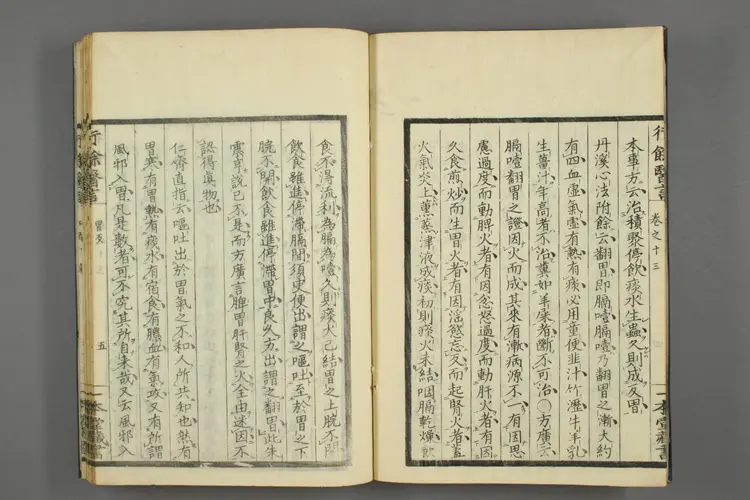 行餘醫言 卷之十三 一本堂藏書
本事方云治積聚停飲痰水生蟲久則成反胃
丹溪心法附餘云翻胃即膈噎膈噎乃翻胃之漸大約
有四血虛氣虛有熱有痰必用童便韭汁竹瀝牛羊乳
生薑汁年高者不治糞如羊屎者斷不可治〇方廣云
膈噎翻胃之證因火而成其來有漸病源不一有因思
慮過度而動脾火者有因忿怒過度而動肝火者有因
久食煎炒而生胃火者有因淫慾忘反而起腎火者蓋
火氣炎上薰蒸津液成痰初則痰火未結咽膈乾燥飲
食不得流利為膈為噎久則痰火已結胃之上脘不開
飲食雖進停滯膈間須臾便出謂之嘔吐至於胃之下
脘不開飲食雖進停滯胃中良久方出謂之翻胃此朱
震亨說已不是而方廣言脾胃肝腎之火全由迷因不
認得真物也
仁齋直指云嘔吐出於胃氣之不和人所共知也然有
胃寒有胃熱有痰水有宿食有膿血有氣攻又有所謂
風邪入胃凡是數者可不究其所自來哉又云風邪入
行餘醫言 五 一本堂藏書